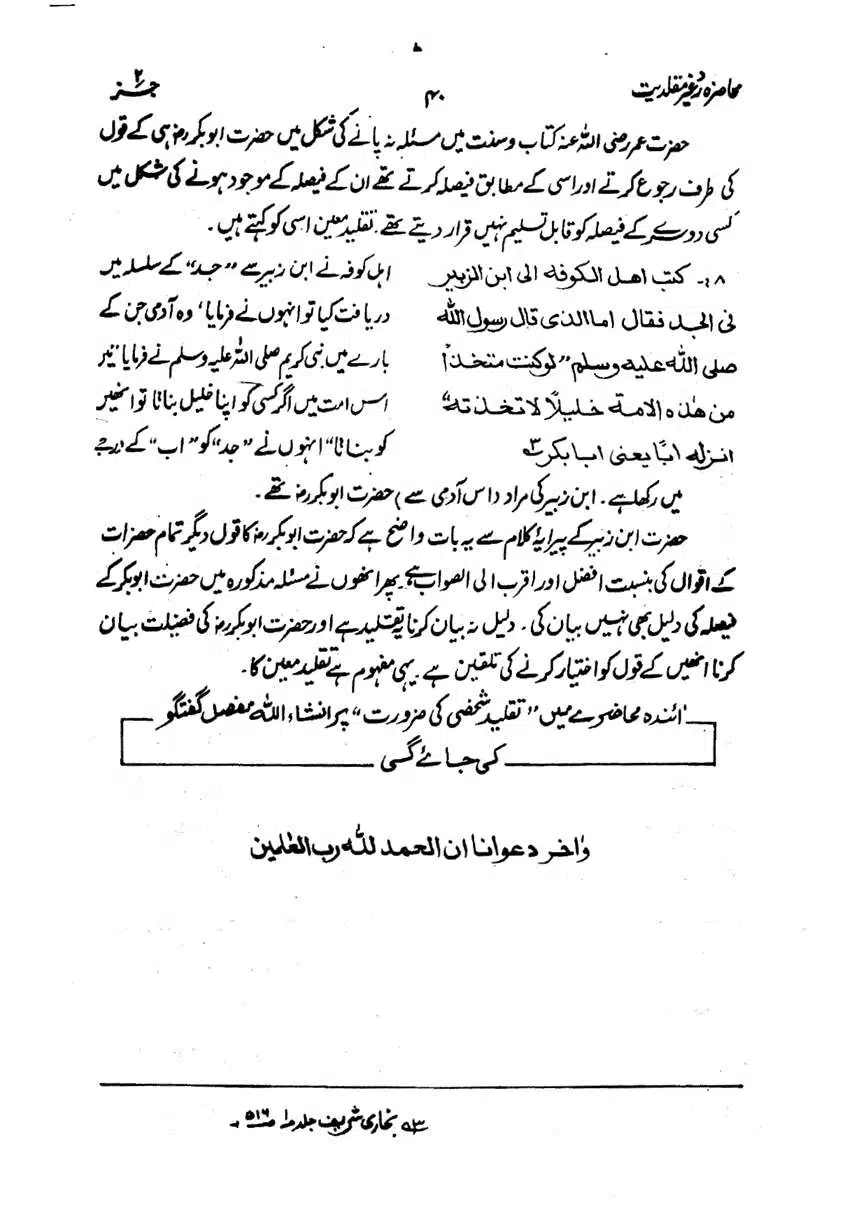 محاضرہ ردّ غیر مقلدیت
۴۰
جز ۲
حضرت عمر رضی اللہ عنہ کتاب و سنت میں مسئلہ نہ پانے کی شکل میں حضرت ابوبکر رضؓ ہی کے قول
کی طرف رجوع کرتے اور اسی کے مطابق فیصلہ کرتے تھے ان کے فیصلہ کے موجود ہونے کی شکل میں
کسی دوسرے کے فیصلہ کو قابل تسلیم نہیں قرار دیتے تھے۔ تقلید معین اسی کو کہتے ہیں۔
۸۔ کتب اھل الکوفه الی ابن الزبیر
فی الجد فقال اما الذی قال رسول اللہ
صلی اللہ علیه وسلم "لو کنت متخذاً
من ھٰذہ الامة خلیلًا لاتخذته"
انزله ابًا یعنی ابابکر ۳؎
اہل کوفہ نے ابن زبیر سے "جد" کے سلسلہ میں
دریافت کیا تو انہوں نے فرمایا، وہ آدمی جن کے
بارے میں نبی کریم صلی اللہ علیہ وسلم نے فرمایا "میں
اس امت میں اگر کسی کو اپنا خلیل بناتا تو انھیں
کو بناتا" انہوں نے "جد" کو "اب" کے درجے
میں رکھا ہے۔ ابن زبیر کی مراد (اس آدمی سے) حضرت ابوبکر رضؓ تھے۔
حضرت ابن زبیر کے پیرایۂ کلام سے یہ بات واضح ہے کہ حضرت ابوبکر رضؓ کا قول دیگر تمام حضرات
کے اقوال کی بنسبت افضل اور اقرب الی الصواب ہے۔ پھر انھوں نے مسئلہ مذکورہ میں حضرت ابوبکر کے
فیصلہ کی دلیل بھی نہیں بیان کی۔ دلیل نہ بیان کرنا یہ تقلید ہے اور حضرت ابوبکر رضؓ کی فضیلت بیان
کرنا انھیں کے قول کو اختیار کرنے کی تلقین ہے۔ یہی مفہوم ہے تقلید معین کا۔
آئندہ محاضرے میں "تقلید شخصی کی ضرورت" پر انشاء اللہ مفصل گفتگو
کی جائے گی
وٰاخر دعوانا ان الحمد للّٰه رب العٰلمین
۳؎ بخاری شریف جلد ۱ ص ۵۱۶۔